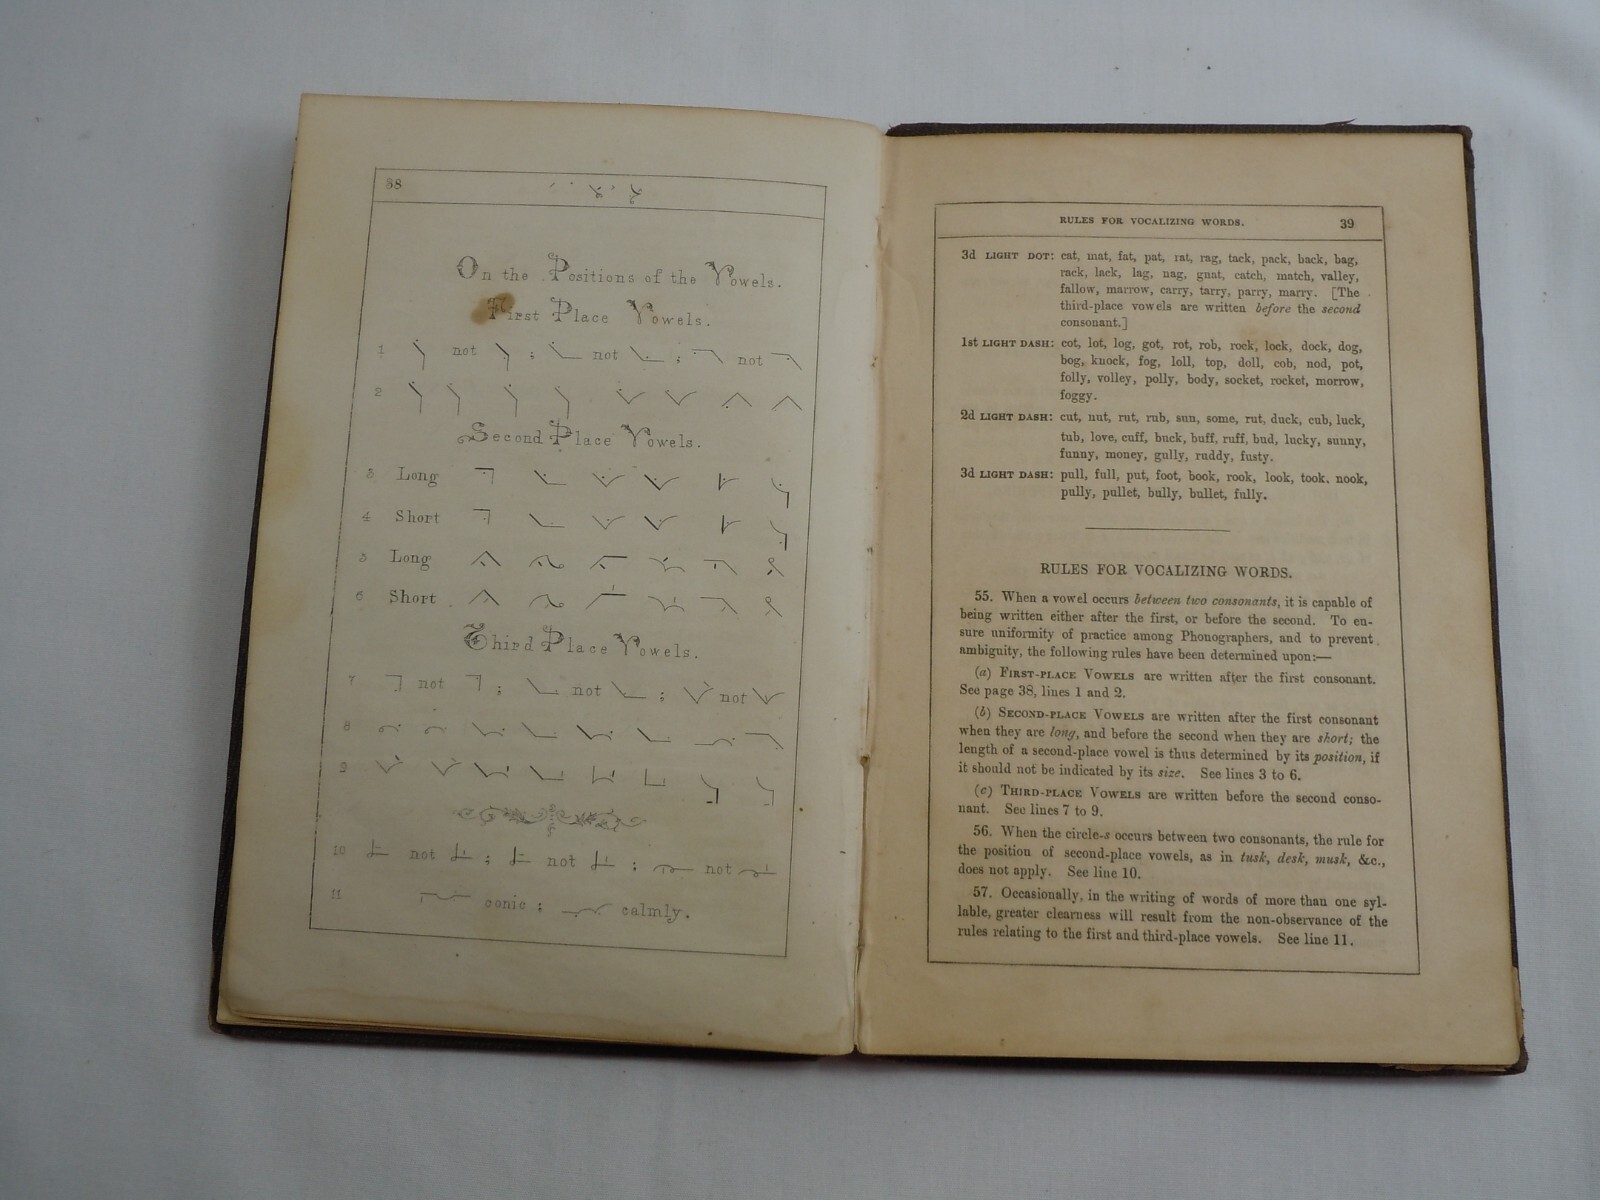 38
On the Positions of the Vowels.
First Place Vowels.
1 not ; not ; not
2
Second Place Vowels.
3 Long
4 Short
5 Long
6 Short
Third Place Vowels.
7 not ; not ; not
8
9
10 not ; not ; not
11 conic ; calmly.
RULES FOR VOCALIZING WORDS. 39
3d LIGHT DOT: cat, mat, fat, pat, rat, rag, tack, pack, back, bag,
rack, lack, lag, nag, gnat, catch, match, valley,
fallow, marrow, carry, tarry, parry, marry. [The
third-place vowels are written before the second
consonant.]
1st LIGHT DASH: cot, lot, log, got, rot, rob, rock, lock, dock, dog,
bog, knock, fog, loll, top, doll, cob, nod, pot,
folly, volley, polly, body, socket, rocket, morrow,
foggy.
2d LIGHT DASH: cut, nut, rut, rub, sun, some, rut, duck, cub, luck,
tub, love, cuff, buck, buff, ruff, bud, lucky, sunny,
funny, money, gully, ruddy, fusty.
3d LIGHT DASH: pull, full, put, foot, book, rook, look, took, nook,
pully, pullet, bully, bullet, fully.
RULES FOR VOCALIZING WORDS.
55. When a vowel occurs between two consonants, it is capable of
being written either after the first, or before the second. To en-
sure uniformity of practice among Phonographers, and to prevent
ambiguity, the following rules have been determined upon:—
(a) FIRST-PLACE VOWELS are written after the first consonant.
See page 38, lines 1 and 2.
(b) SECOND-PLACE VOWELS are written after the first consonant
when they are long, and before the second when they are short; the
length of a second-place vowel is thus determined by its position, if
it should not be indicated by its size. See lines 3 to 6.
(c) THIRD-PLACE VOWELS are written before the second conso-
nant. See lines 7 to 9.
56. When the circle-s occurs between two consonants, the rule for
the position of second-place vowels, as in tusk, desk, musk, &c.,
does not apply. See line 10.
57. Occasionally, in the writing of words of more than one syl-
lable, greater clearness will result from the non-observance of the
rules relating to the first and third-place vowels. See line 11.